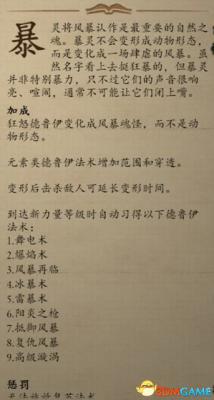 暴灵将风暴认作是最重要的自然之
魂。暴灵不会变形成动物形态,
而是变化成一场肆虐的风暴。虽
然名字看上去挺狂暴的,但暴灵
并非特别暴力,只不过它们的声音很响
亮、喧闹,通常不可能让它们闭上嘴。
加成
狂怒德鲁伊变化成风暴魂怪,而不是动
物形态。
元素类德鲁伊法术增加范围和穿透。
变形后击杀敌人可延长变形时间。
到达新力量等级时自动习得以下德鲁伊
法术:
1.舞电术
2.爆焰术
3.风暴再临
4.冰暴术
5.雷暴术
6.阳炎之枪
7.抵御风暴
8.复仇风暴
9.高级漩涡
惩罚